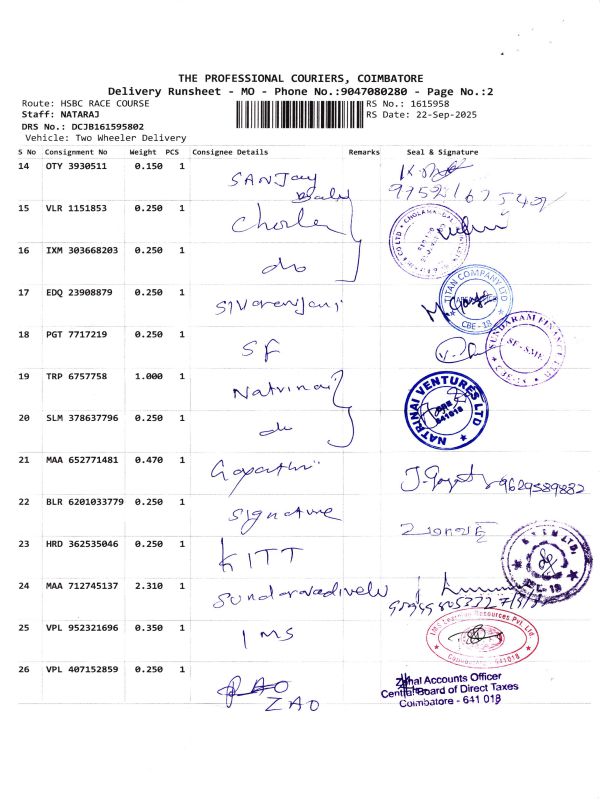 THE PROFESSIONAL COURIERS, COIMBATORE
Delivery Runsheet - MO - Phone No.:9047080280 - Page No.:2
Route: HSBC RACE COURSE
RS No.: 1615958
Staff: NATARAJ
RS Date: 22-Sep-2025
DRS No.: DCJB161595802
Vehicle: Two Wheeler Delivery
S No Consignment No Weight PCS Consignee Details Remarks Seal & Signature
14 OTY 3930511 0.150 1 SANJay
15 VLR 1151853 0.250 1 Chola
16 IXM 303668203 0.250 1 do
17 EDQ 23908879 0.250 1 Sivaranjani
TITAN COMPANY LTD
CBE-18
18 PGT 7717219 0.250 1 SF
SUNDARAM FINANCE
SF-SME
19 TRP 6757758 1.000 1 Natrinai
NATRINAI VENTURES LTD
641018
20 SLM 378637796 0.250 1 do
21 MAA 652771481 0.470 1 Gayathri 9629589882
22 BLR 6201033779 0.250 1 Signature
23 HRD 362535046 0.250 1 KITT
24 MAA 712745137 2.310 1 Sundaravadivelu
25 VPL 952321696 0.350 1 IMS
IMS Learning Resources Pvt. Ltd.
Coimbatore - 641 018
26 VPL 407152859 0.250 1 ZAO
Zonal Accounts Officer
Central Board of Direct Taxes
Coimbatore - 641 018